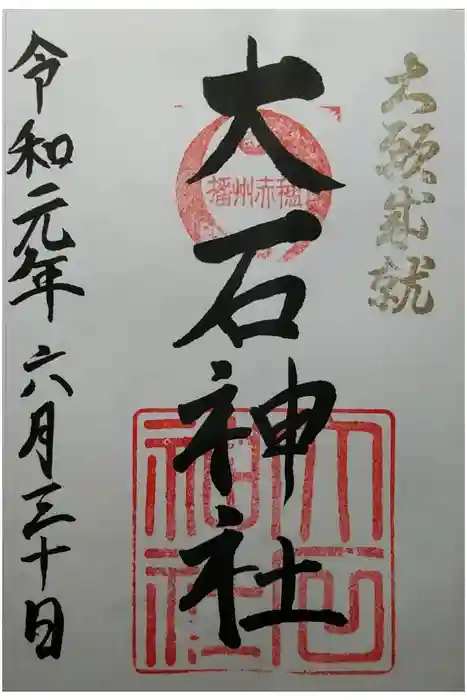 大願成就
播州赤穂
大石神社
大石神社
令和元年六月三十日